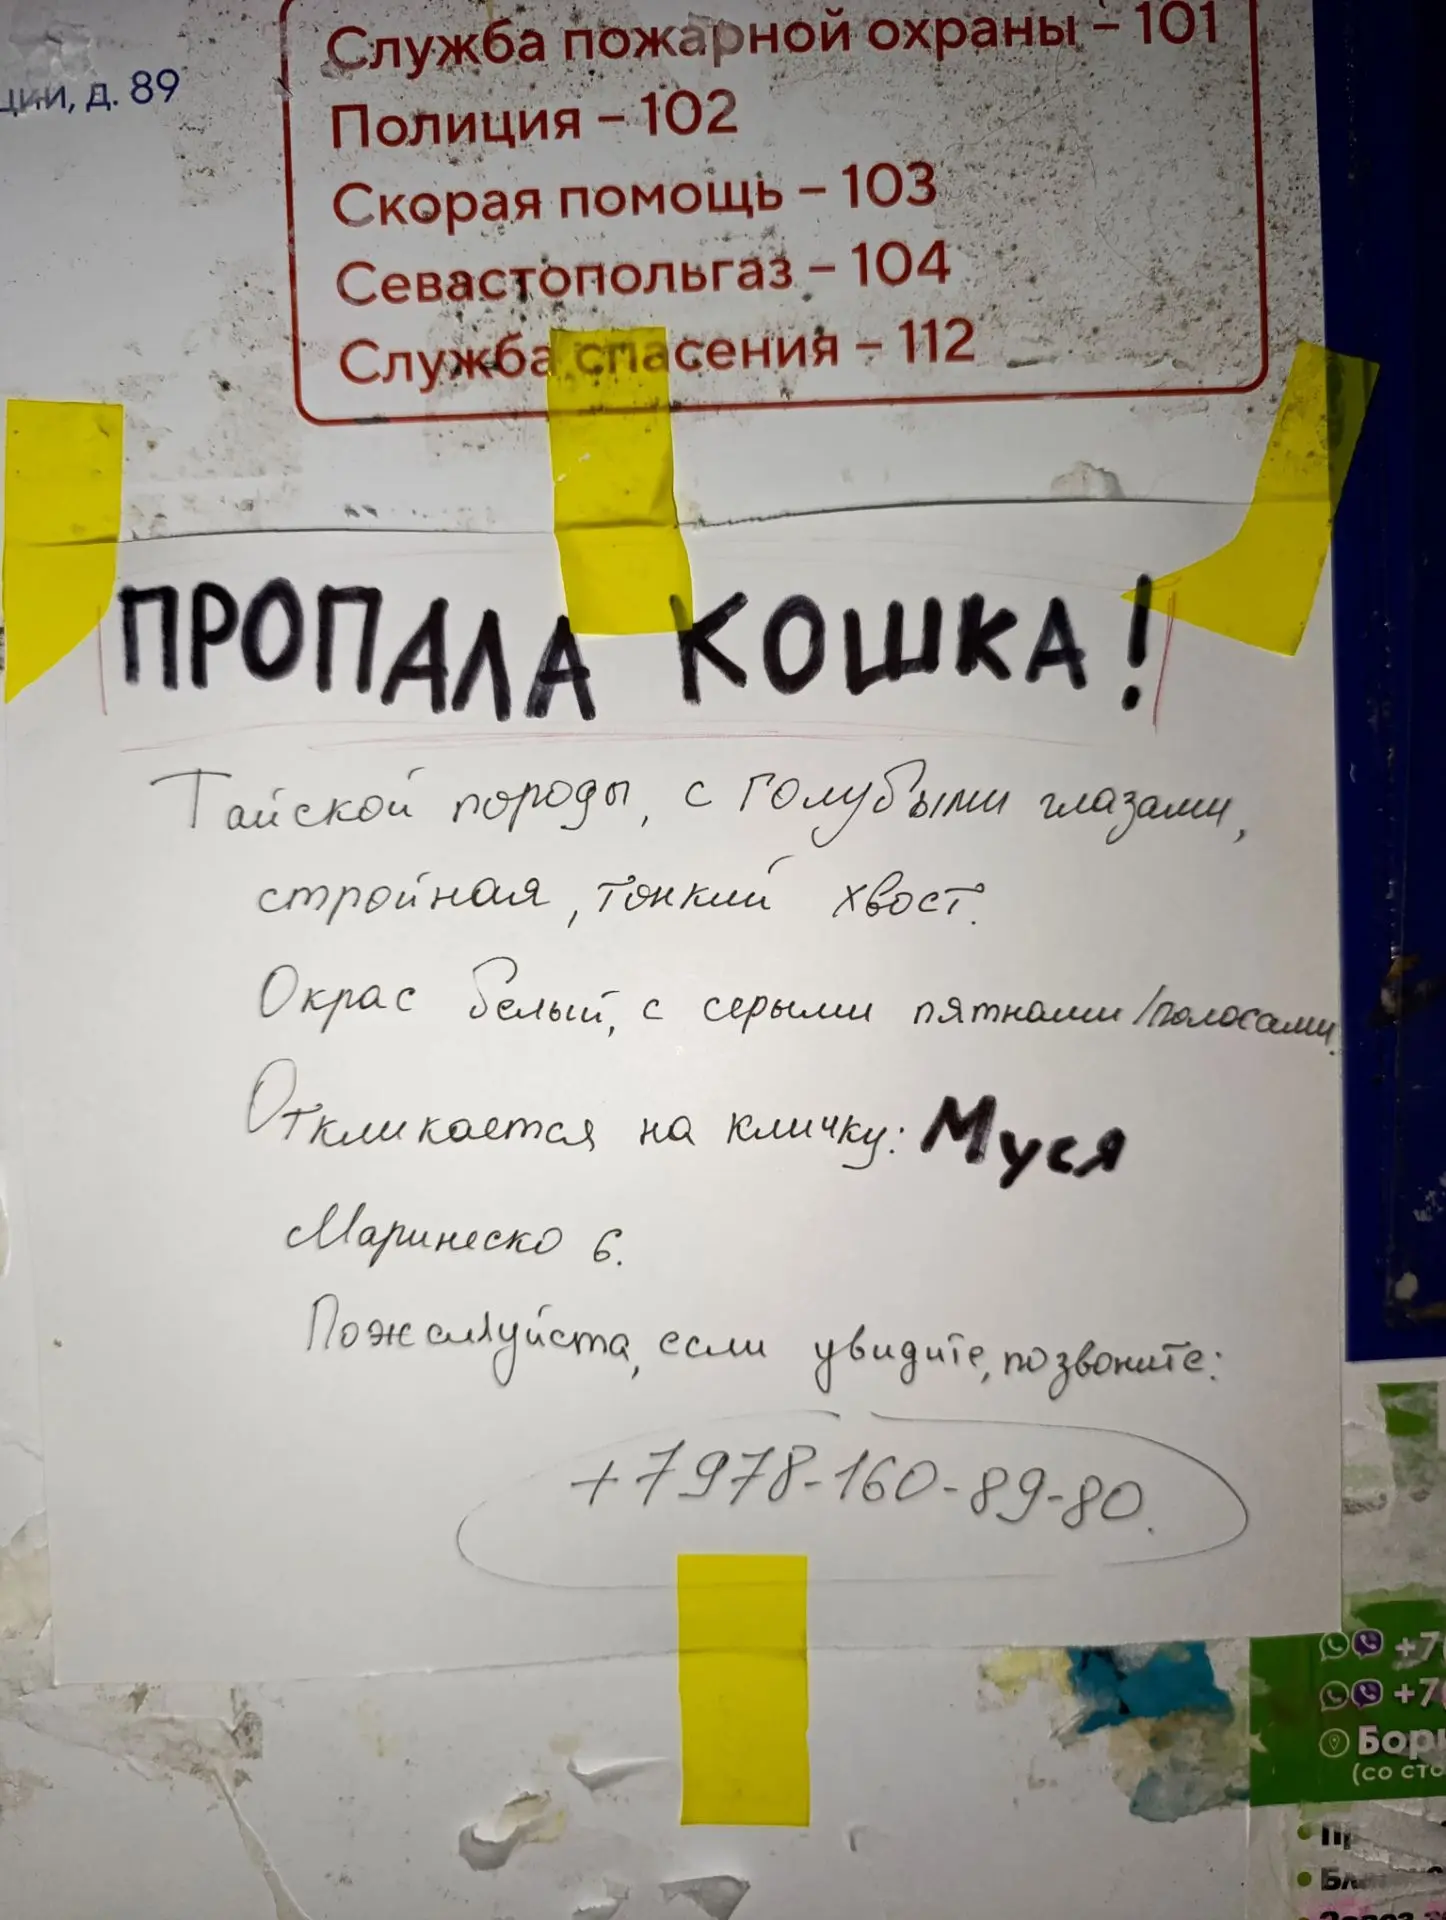 Служба пожарной охраны – 101
ции, д. 89
Полиция – 102
Скорая помощь – 103
Севастопольгаз – 104
Служба спасения – 112
ПРОПАЛА КОШКА!
Тайской породы, с голубыми глазами,
стройная, тонкий хвост.
Окрас белый, с серыми пятнами/полосами.
Откликается на кличку: Муся
Маринеско 6.
Пожалуйста, если увидите, позвоните:
+7978-160-89-80.
+7
+7
Бори
(со сто